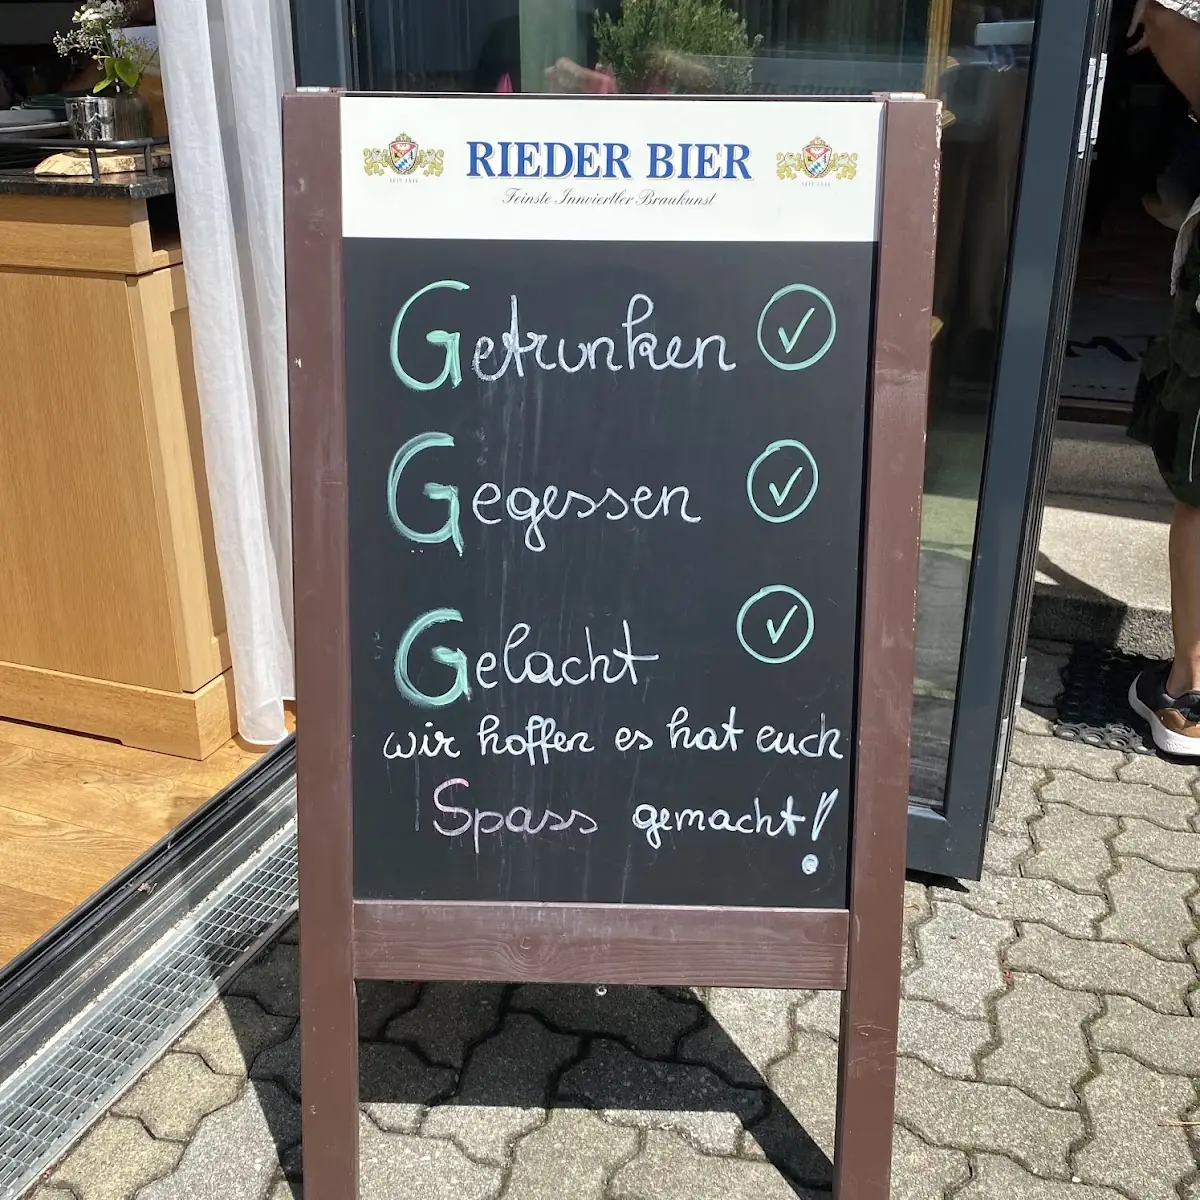 RIEDER BIER
Feinste Innviertler Braukunst
Getrunken ✓
Gegessen ✓
Gelacht ✓
wir hoffen es hat euch
Spass gemacht!